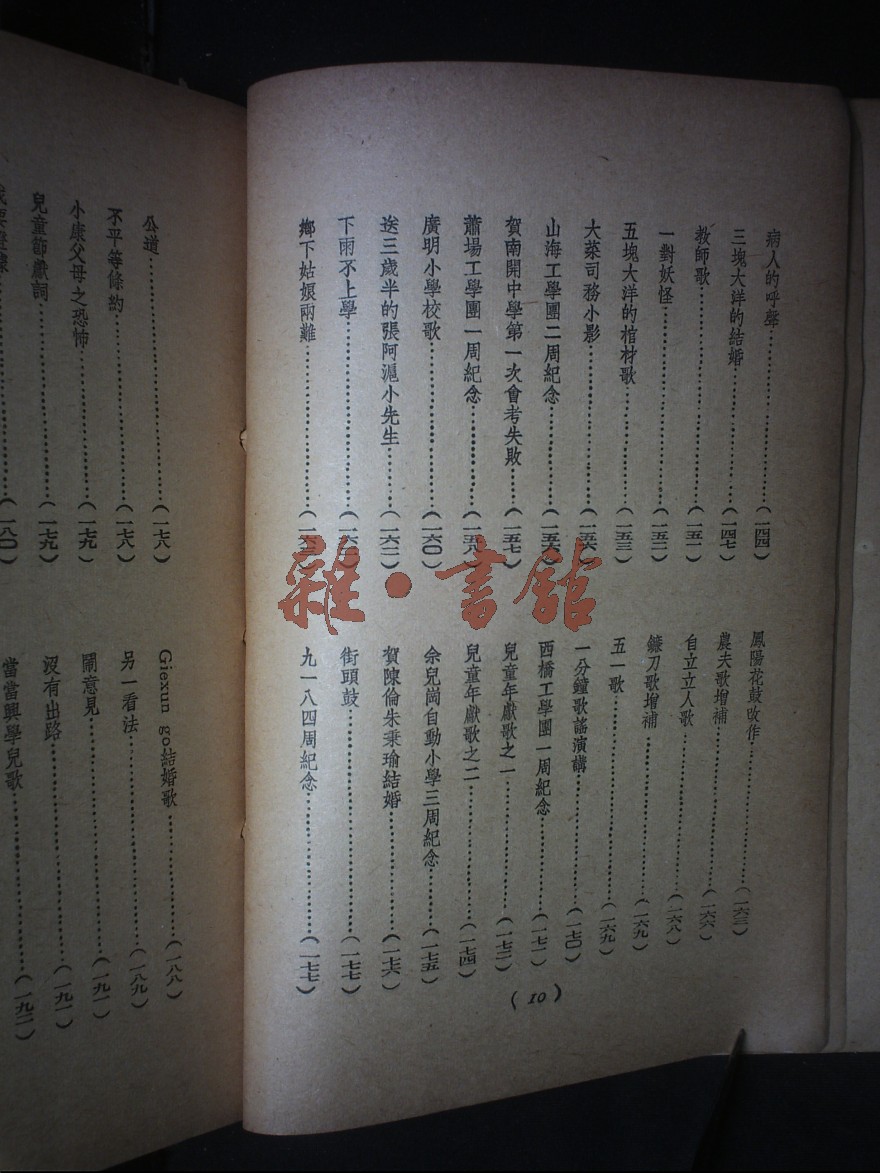 病人的呼聲……(一四四)
三塊大洋的結婚……(一四七)
教師歌……(一五一)
一對妖怪……(一五二)
五塊大洋的棺材歌……(一五三)
大菜司務小影……(一五六)
山海工學團二周紀念……(一五六)
賀南開中學第一次會考失敗……(一五七)
蕭場工學團一周紀念……(一五八)
廣明小學校歌……(一六〇)
送三歲半的張阿滬小先生……(一六二)
下雨不上學……
鄉下姑娘兩難……
鳳陽花鼓改作……(一六三)
農夫歌增補……(一六六)
自立立人歌……(一六八)
鐮刀歌增補……(一六九)
五一歌……(一六九)
一分鐘歌謠演講……(一七〇)
西橋工學團一周紀念……(一七一)
兒童年獻歌之一……(一七二)
兒童年獻歌之二……(一七四)
佘兒崗自動小學三周紀念……(一七五)
賀陳倫朱秉瑜結婚……(一七六)
街頭鼓……(一七七)
九一八四周紀念……(一七七)
(10)
公道……(一七八)
不平等條約……(一七八)
小康父母之恐怖……(一七九)
兒童節獻詞……(一七九)
……(一八〇)
Giexun go結婚歌……(一八八)
另一看法……(一八九)
鬧意見……(一九一)
沒有出路……(一九一)
當當興學兒歌……(一九二)
雜·書館